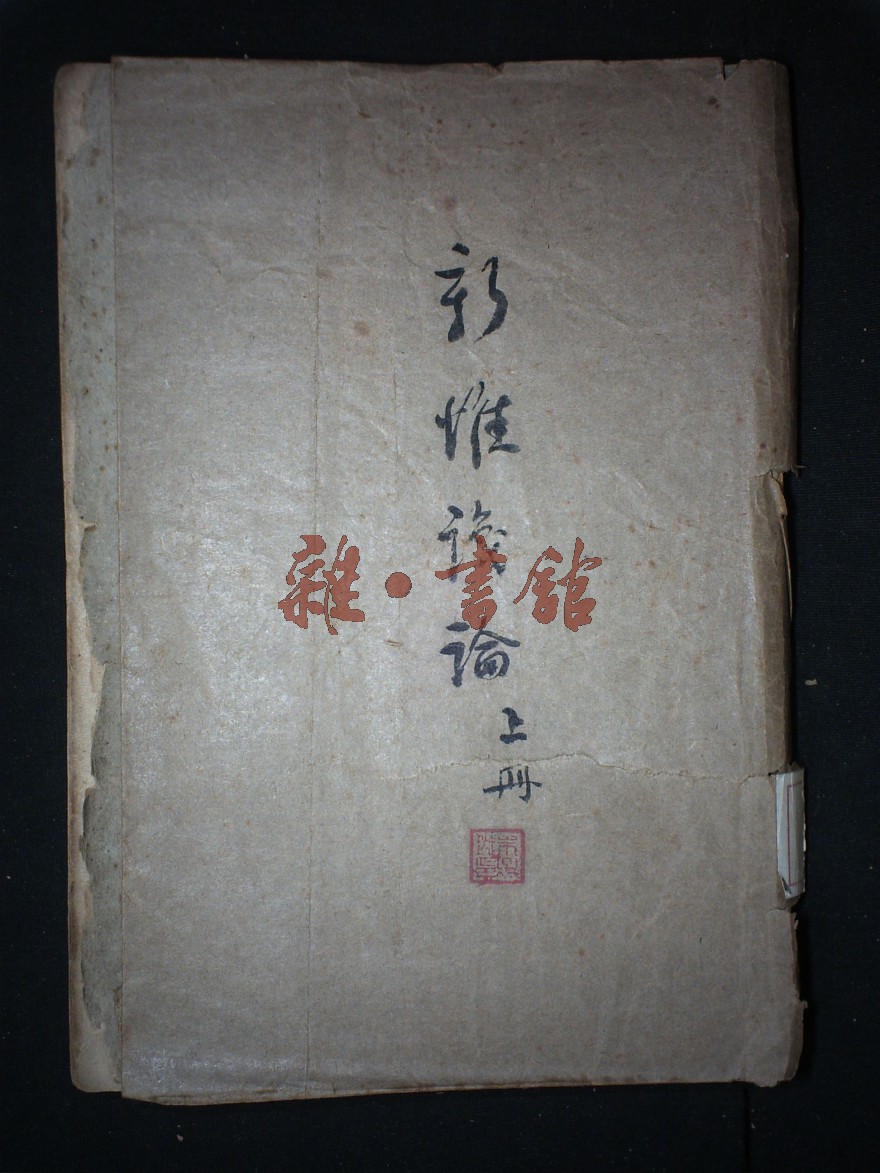 新惟識論
上冊
雜·書館